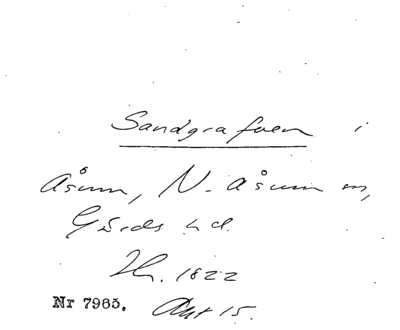 Sandgrafven i
Åsum, N. Åsum sn,
Gärds hd.
Hr. 1822
Nr 7965. Akt 15.